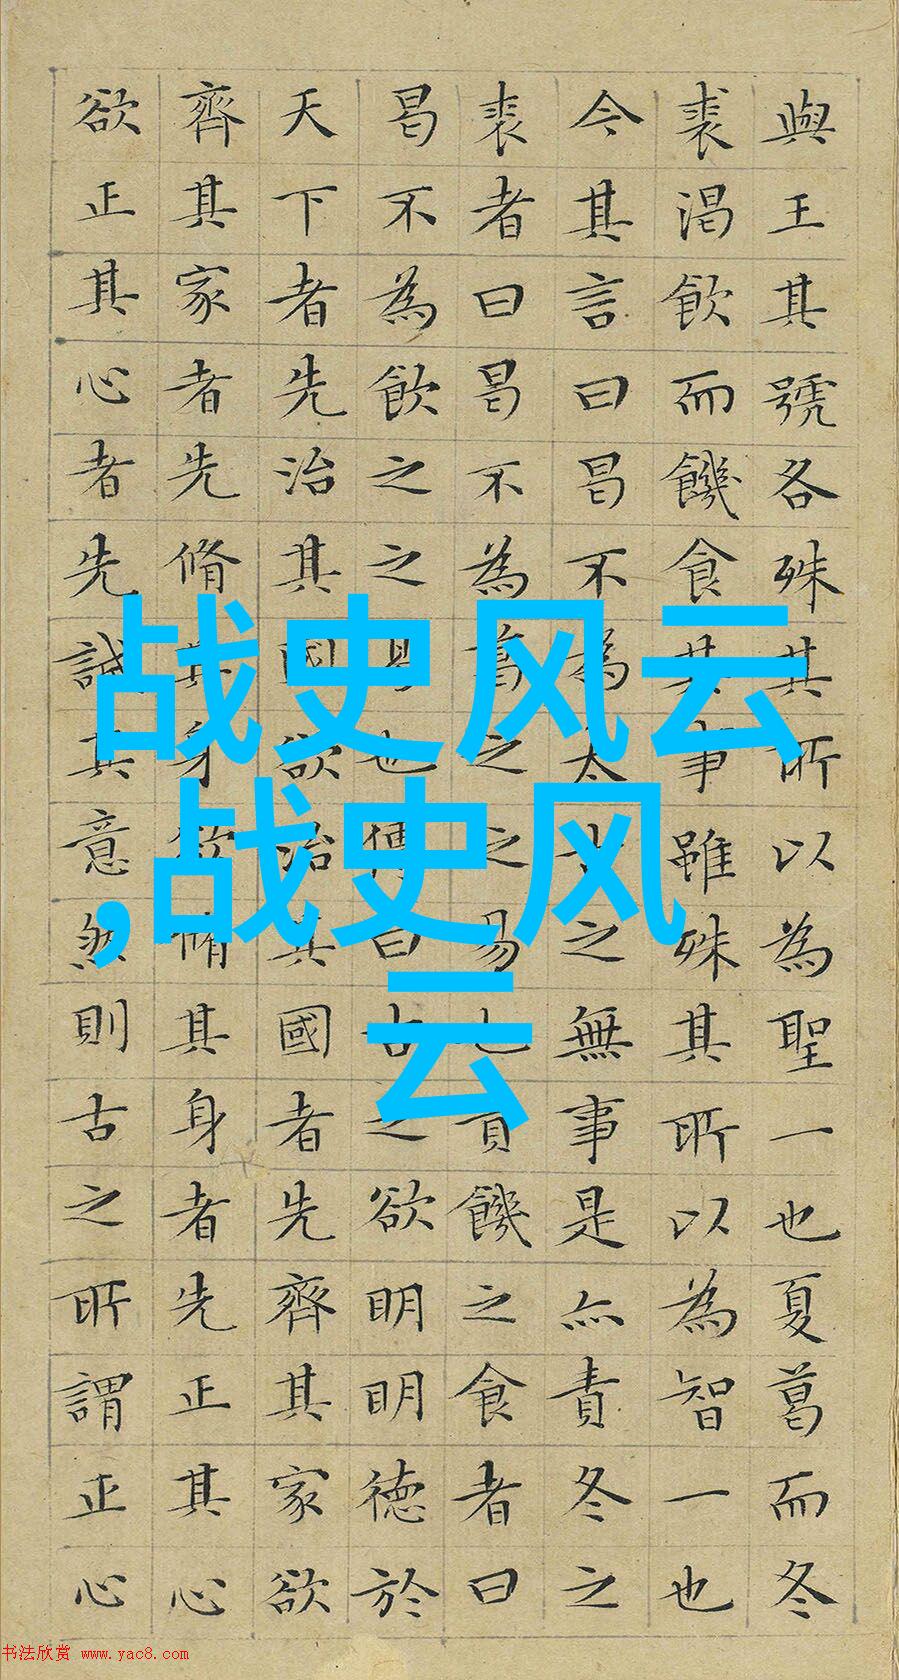 與王其號各殊其所以為聖一也夏葛而冬
裘渴飲而饑食其事雖殊其所以為智一也
今其言曰曷不為太古之無事是亦責冬之
裘者曰曷不為葛之之易也責饑之食者曰
曷不為飲之之易也傳曰古之欲明明德於
天下者先治其國欲治其國者先齊其家欲
齊其家者先脩其身欲脩其身者先正其心
欲正其心者先誠其意然則古之所謂正心
战史风云
,战史风
云
书法欣赏 www.yac8.com